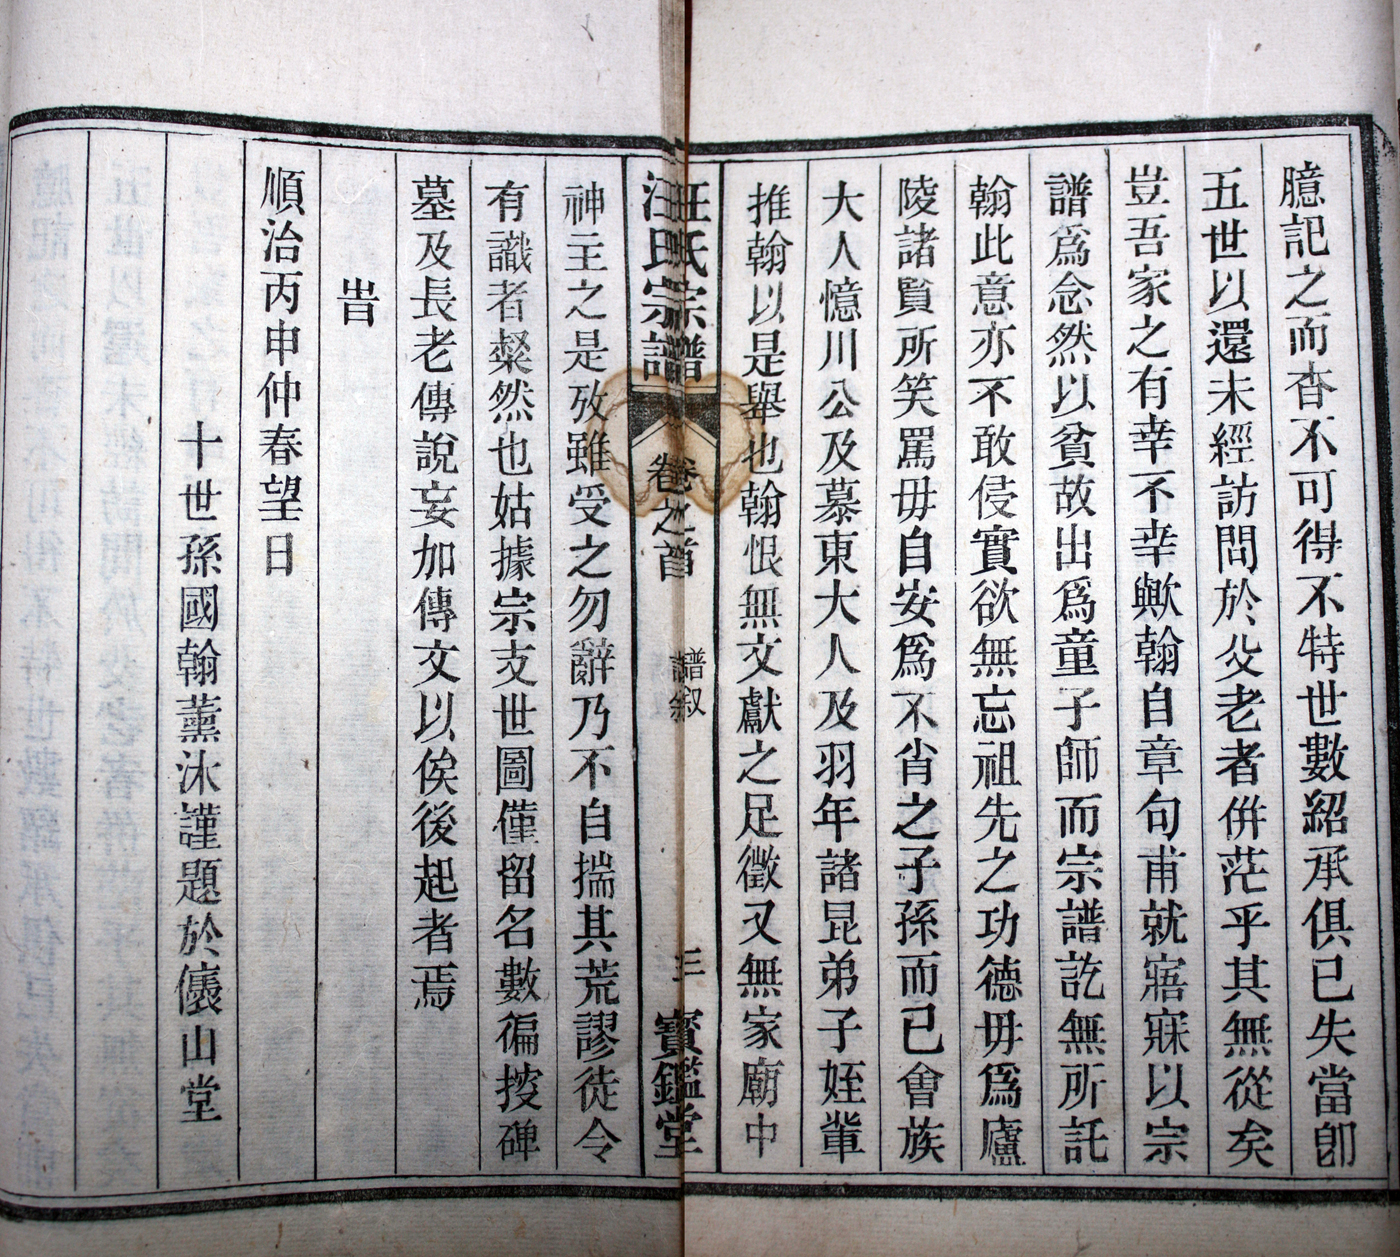 臆記之而杳不可得不特世數紹承俱已失當卽
五世以還未經訪問於父老者併茫乎其無從矣
豈吾家之有幸不幸歟翰自章句甫就寤寐以宗
譜爲念然以貧故出爲童子師而宗譜訖無所託
翰此意亦不敢侵實欲無忘祖先之功德毋爲廬
陵諸賢所笑罵毋自安爲不肖之子孫而已會族
大人憶川公及慕東大人及羽年諸昆弟子姪輩
推翰以是舉也翰恨無文獻之足徵又無家廟中
汪氏宗譜 卷之首 譜叙 三 寶鑑堂
神主之是攷雖受之勿辭乃不自揣其荒謬徒令
有識者粲然也姑據宗支世圖僅留名數徧搜碑
墓及長老傳說妄加傳文以俟後起者焉
旹
順治丙申仲春望日
十世孫國翰薰沐謹題於儀山堂